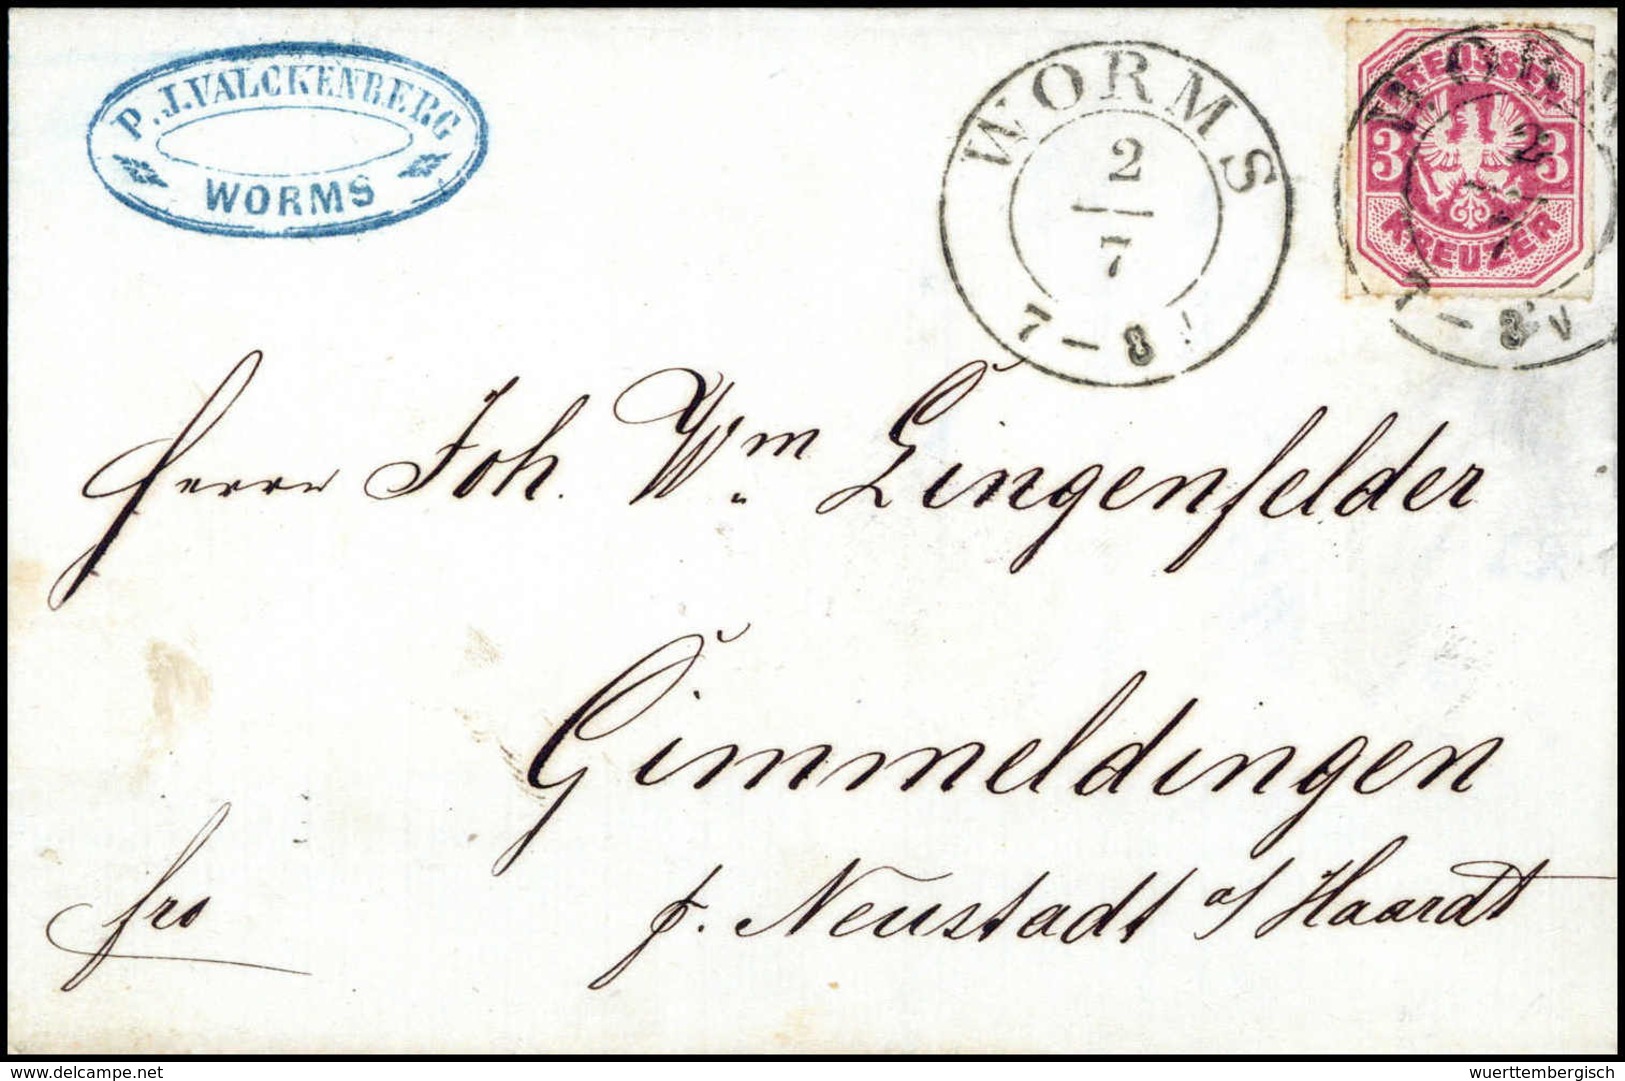 P. J. VALCKENBERG
WORMS
WORMS
2
7
7 - 8
PREUSSEN
3 3
KREUZER
WORMS
2
7
7 - 8 V
Herrn Joh. Wm Lingenfelder
Gimmeldingen
fro
p. Neustadt a/Haardt
delcampe.net
wuerttembergisch